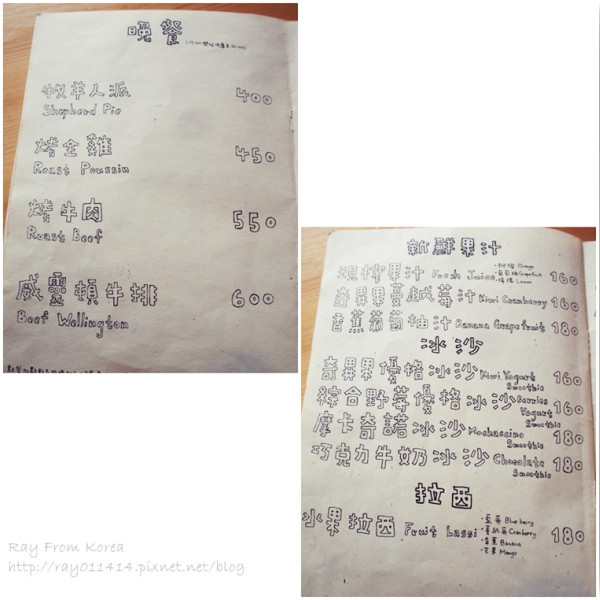 晚餐
牧羊人派 400
Shepherd Pie
烤全雞 450
Roast Poussin
烤牛肉 550
Roast Beef
威靈頓牛排 600
Beef Wellington
新鮮果汁
現榨果汁 Fresh Juice 160
・柳橙 Orange
・葡萄柚 Grapefruit
・檸檬 Lemon
奇異果蔓越莓汁 Kiwi Cranberry 160
香蕉葡萄柚汁 Banana Grapefruit 180
冰沙
奇異果優格冰沙 Kiwi Yogurt Smoothie 160
綜合野莓優格冰沙 Berries Yogurt Smoothie 160
摩卡奇諾冰沙 Mochaccino Smoothie 180
巧克力牛奶冰沙 Chocolate Smoothie 180
拉西
水果拉西 Fruit Lassi 180
・藍莓 Blueberry
・蔓越莓 Cranberry
・香蕉 Banana
・芒果 Mango
Ray From Korea
http://ray011414.pixnet.net/blog